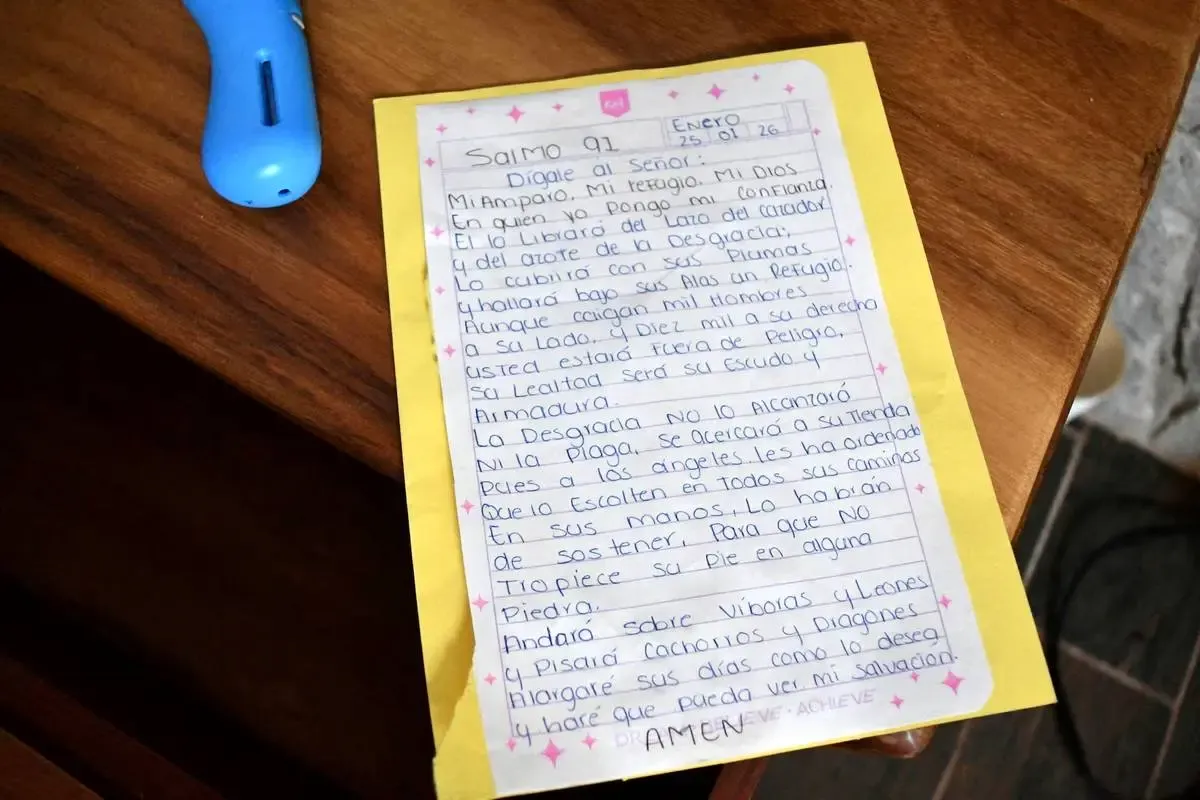 Salmo 91
Enero
25 01 26
Dígale al Señor:
Mi Amparo, Mi refugio, Mi Dios
En quien yo pongo mi confianza.
El lo Librará del Lazo del cazador
y del azote de la Desgracia;
Lo cubrirá con sus Plumas
y hallará bajo sus Alas un Refugio.
Aunque caigan mil Hombres
a su Lado, y Diez mil a su derecha
usted estará Fuera de Peligro,
su Lealtad será su Escudo y
Armadura.
La Desgracia No lo Alcanzará
Ni la Plaga, se acercará a su Tienda
pues a los ángeles, les ha ordenado
Que lo Escolten en Todos sus caminos
En sus manos, Lo habrán
de sostener, Para que NO
Tropiece su Pie en alguna
Piedra.
Andará sobre Víboras y Leones
y Pisará Cachorros y Dragones
Alargaré sus días como lo desea
y haré que pueda ver mi salvación.
ACHIEVE
AMEN